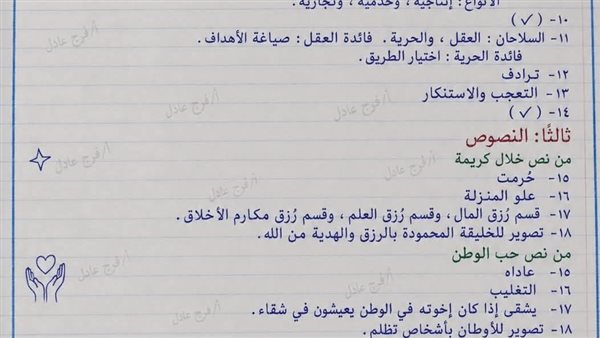 الأنواع : إنتاجية ، وخدمية ، وتجارية .
١٠- (✓)
١١- السلاحان : العقل ، والحرية . فائدة العقل : صياغة الأهداف .
فائدة الحرية : اختيار الطريق .
١٢- ترادف
١٣- التعجب والاستنكار
١٤- (✓)
ثالثًا: النصوص
من نص خلال كريمة
١٥- حُرمت
١٦- علو المنزلة
١٧- قسم رُزق المال ، وقسم رُزق العلم ، وقسم رُزق مكارم الأخلاق .
١٨- تصوير للخليقة المحمودة بالرزق والهدية من الله .
من نص حب الوطن
١٥- عاداه
١٦- التغليب
١٧- يشقى إذا كان إخوته في الوطن يعيشون في شقاء .
١٨- تصوير للأوطان بأشخاص تظلم .
أ/فرج عادل
أ/فرج عادل
أ/فرج عادل
أ/فرج عادل
أ/فرج عادل
أ/فرج عادل
أ/فرج عادل
أ/فرج عادل
أ/فرج عادل